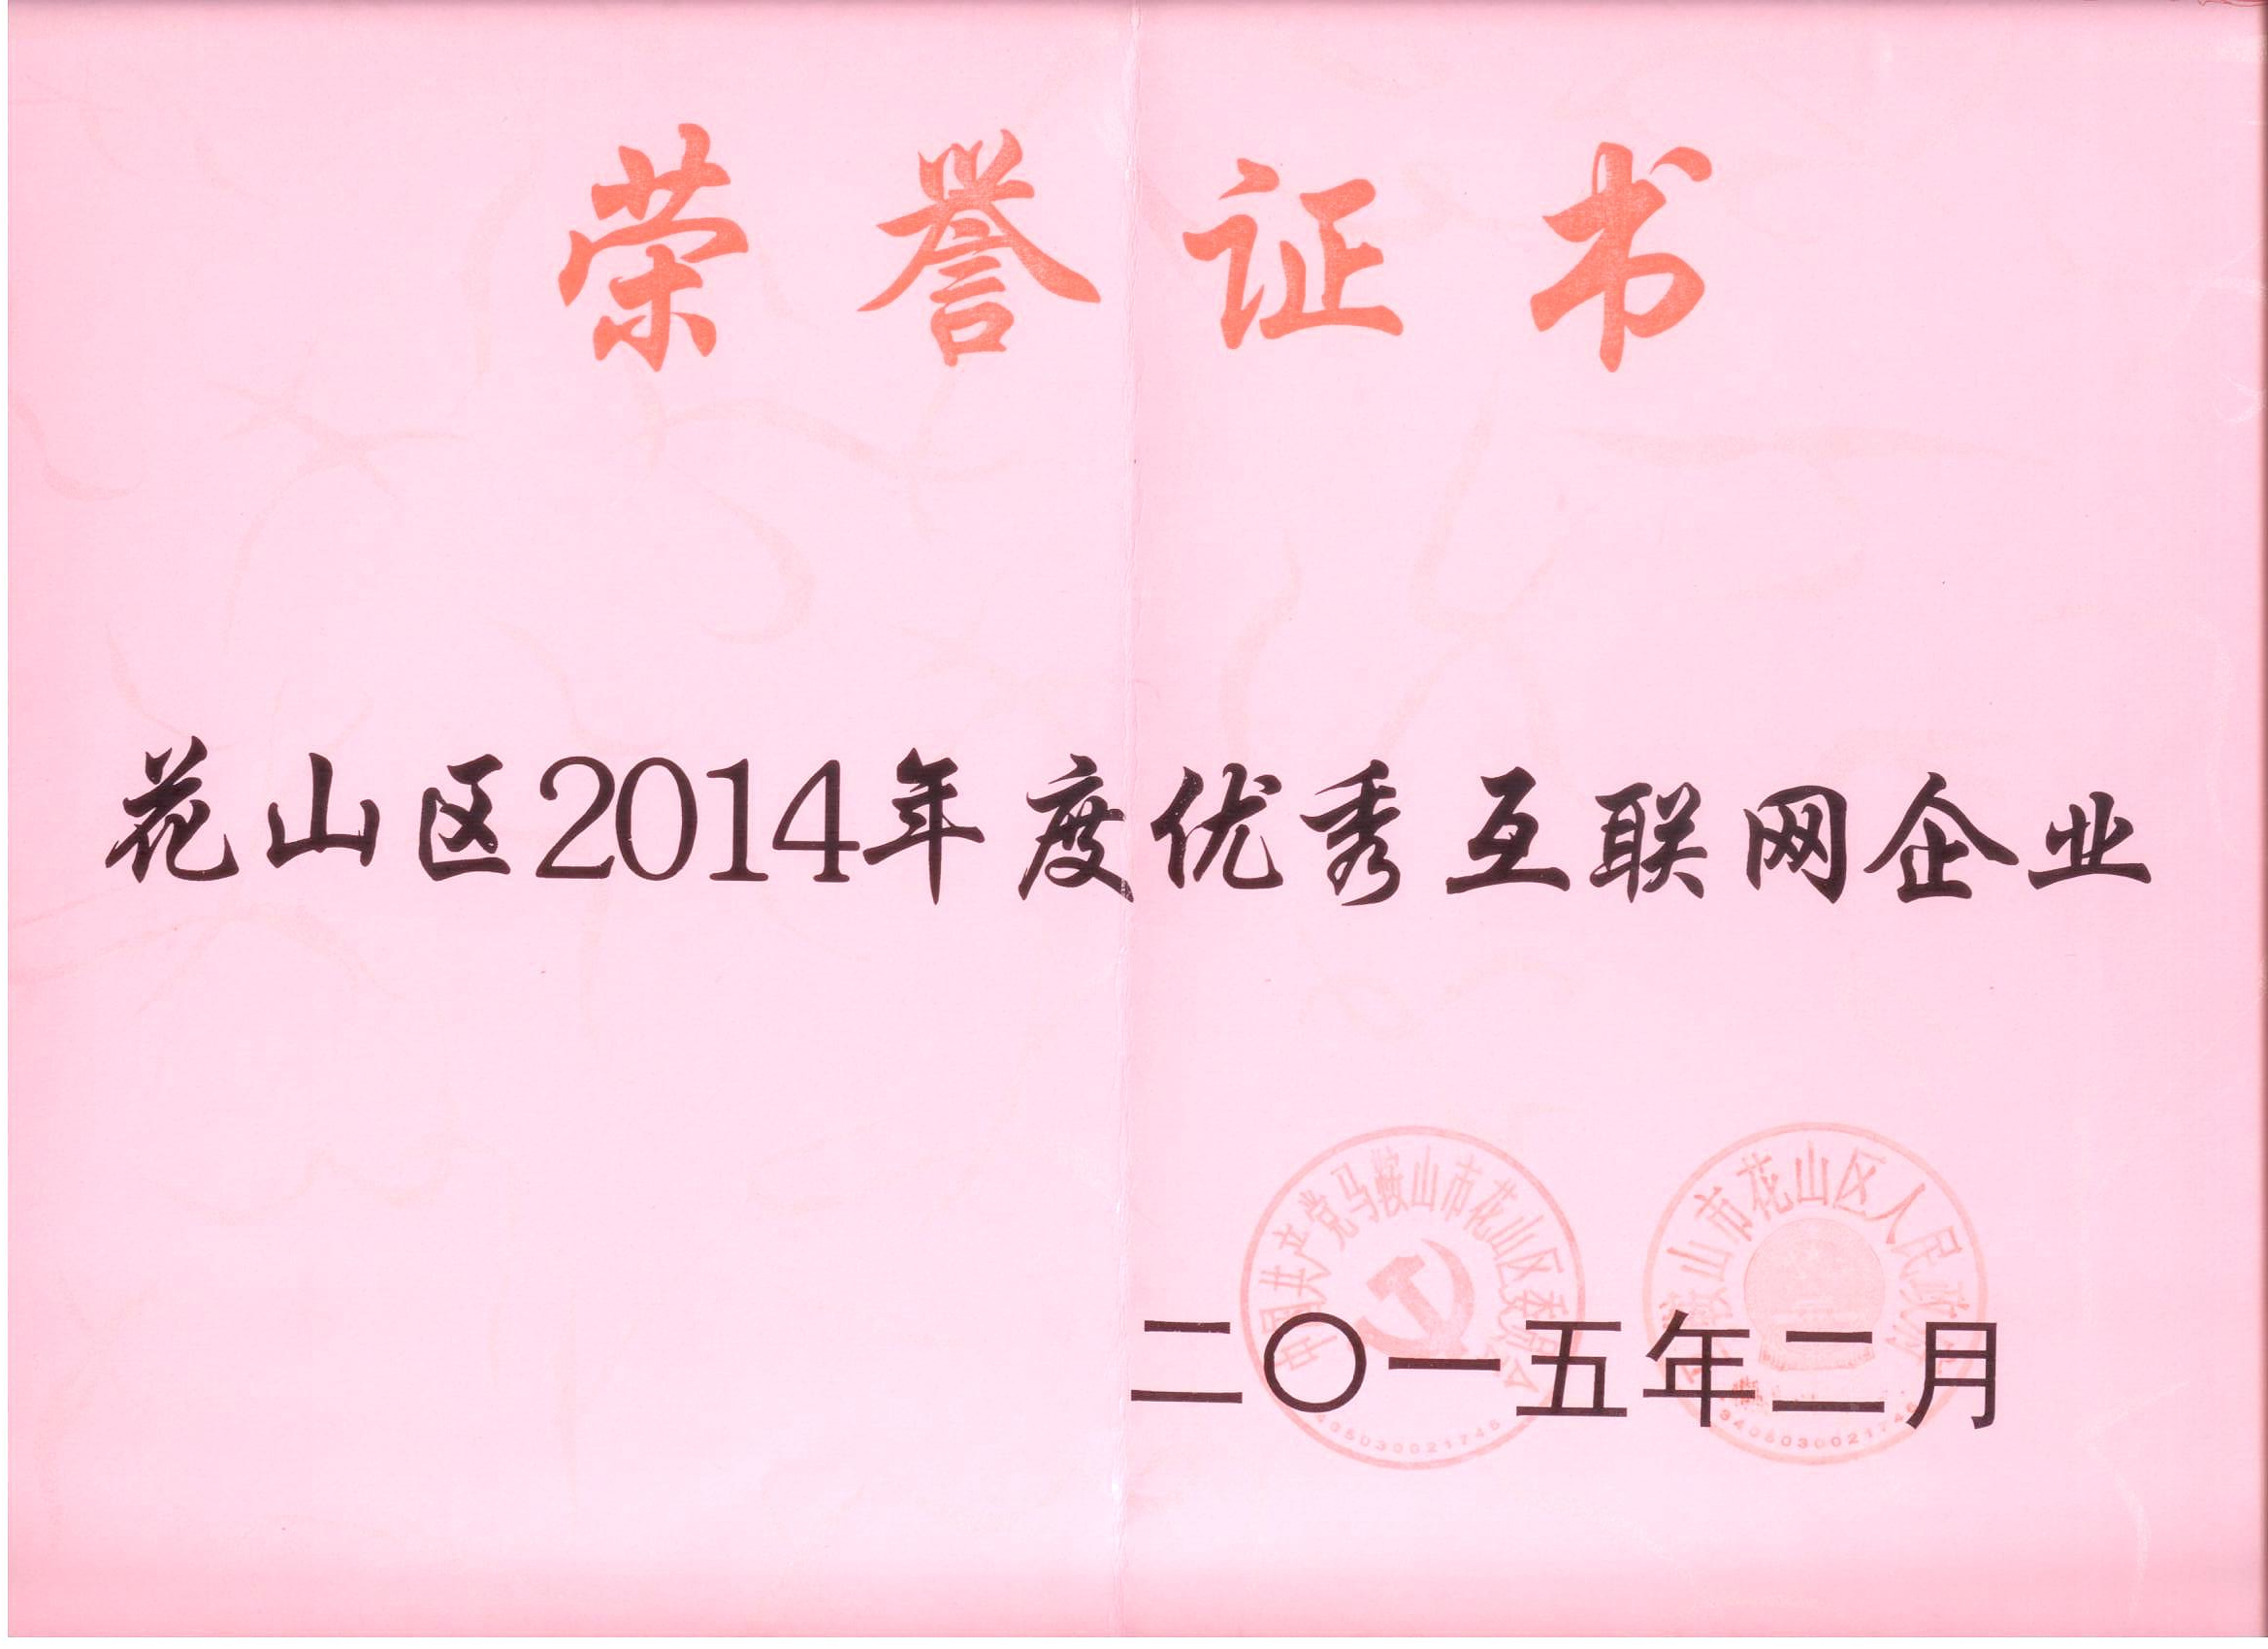 荣誉证书
花山区2014年度优秀互联网企业
中国共产党马鞍山市花山区委员会
马鞍山市花山区人民政府
二〇一五年二月